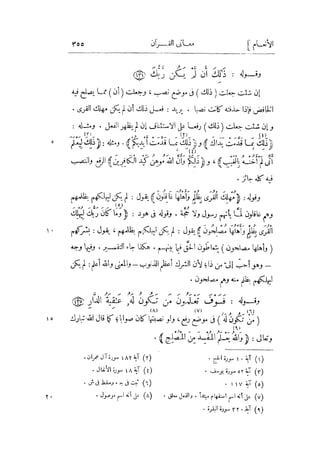 الأنعام ] معانى القرآن ٣٥٥
وقوله : ذَلِكَ أَن لَّمْ يَكُن رَّبُّكَ ﴿١٣١﴾
إن شئت جعلت ( ذلك ) فى موضع نصب ، وجعلت ( أن ) مما يصلح فيه
الخافض فإذا حذفته كانت نصبا . يريد : فعل ذلك أن لم يكن مهلك القرى .
و إن شئت جعلت ( ذلك ) رفعا على الاستئناف إن لم يظهر الفعل . ومثله :
﴿ ذَلِكَ بِمَا قَدَّمَتْ يَدَاكَ ﴾ و ﴿ ذَلِكَ بِمَا قَدَّمَتْ أَيْدِيكُمْ ﴾ . ومثله : ﴿ ذَلِكَ لِيَعْلَمَ ٥
أَنِّى لَمْ أَخُنْهُ بِالْغَيْبِ ﴾ ، و ﴿ ذَلِكُمْ وَأَنَّ اللهَ مُوهِنُ كَيْدِ الْكَافِرِينَ ﴾ الرفع والنصب
فيه كله جائز .
وقوله : ﴿ مُهْلِكَ الْقُرَى بِظُلْمٍ وَأَهْلُهَا غَافِلُونَ ﴾ يقول : لم يكن ليهلكهم بظلمهم
وهم غافلون لمّا يأتهم رسول ولا حجّة . وقوله فى هود : ﴿ وَمَا كَانَ رَبُّكَ لِيُهْلِكَ
الْقُرَى بِظُلْمٍ وَأَهْلُهَا مُصْلِحُونَ ﴾ يقول : لم يكن ليهلكهم بظلمهم ، يقول : بشركهم ١٠
( وأهلها مصلحون ) يتعاطون الحقّ فيما بينهم . هكذا جاء التفسير . وفيها وجه
– وهو أحب إلىّ من ذا ؛ لأن الشرك أعظم الذنوب – والمعنى والله أعلم : لم يكن
ليهلكهم بظلم منه وهم مصلحون .
وقوله : فَسَوْفَ تَعْلَمُونَ مَن تَكُونُ لَهُ عَاقِبَةُ الدَّارِ ﴿١٣٥﴾
( مَنْ تَكُونُ لَهُ ) (٧) فى موضع رفع ، ولو نصبتها (٨) كان صوابا ؛ كما قال الله تبارك ١٥
وتعالى : ﴿ وَاللهُ يَعْلَمُ الْمُفْسِدَ مِنَ الْمُصْلِحِ ﴾ .
(١) آية ١٠ سورة الحج . (٢) آية ١٨٢ سورة آل عمران .
(٣) آية ٥٢ سورة يوسف . (٤) آية ١٨ سورة الأنفال .
(٥) آية ١١٧ . (٦) ثبت فى ج ، وسقط فى ش .
(٧) على أنه اسم استفهام مبتدأ ، والفعل معلق . (٨) على أنه اسم موصول . ٢٠
(٩) آية ٢٢٠ سورة البقرة .